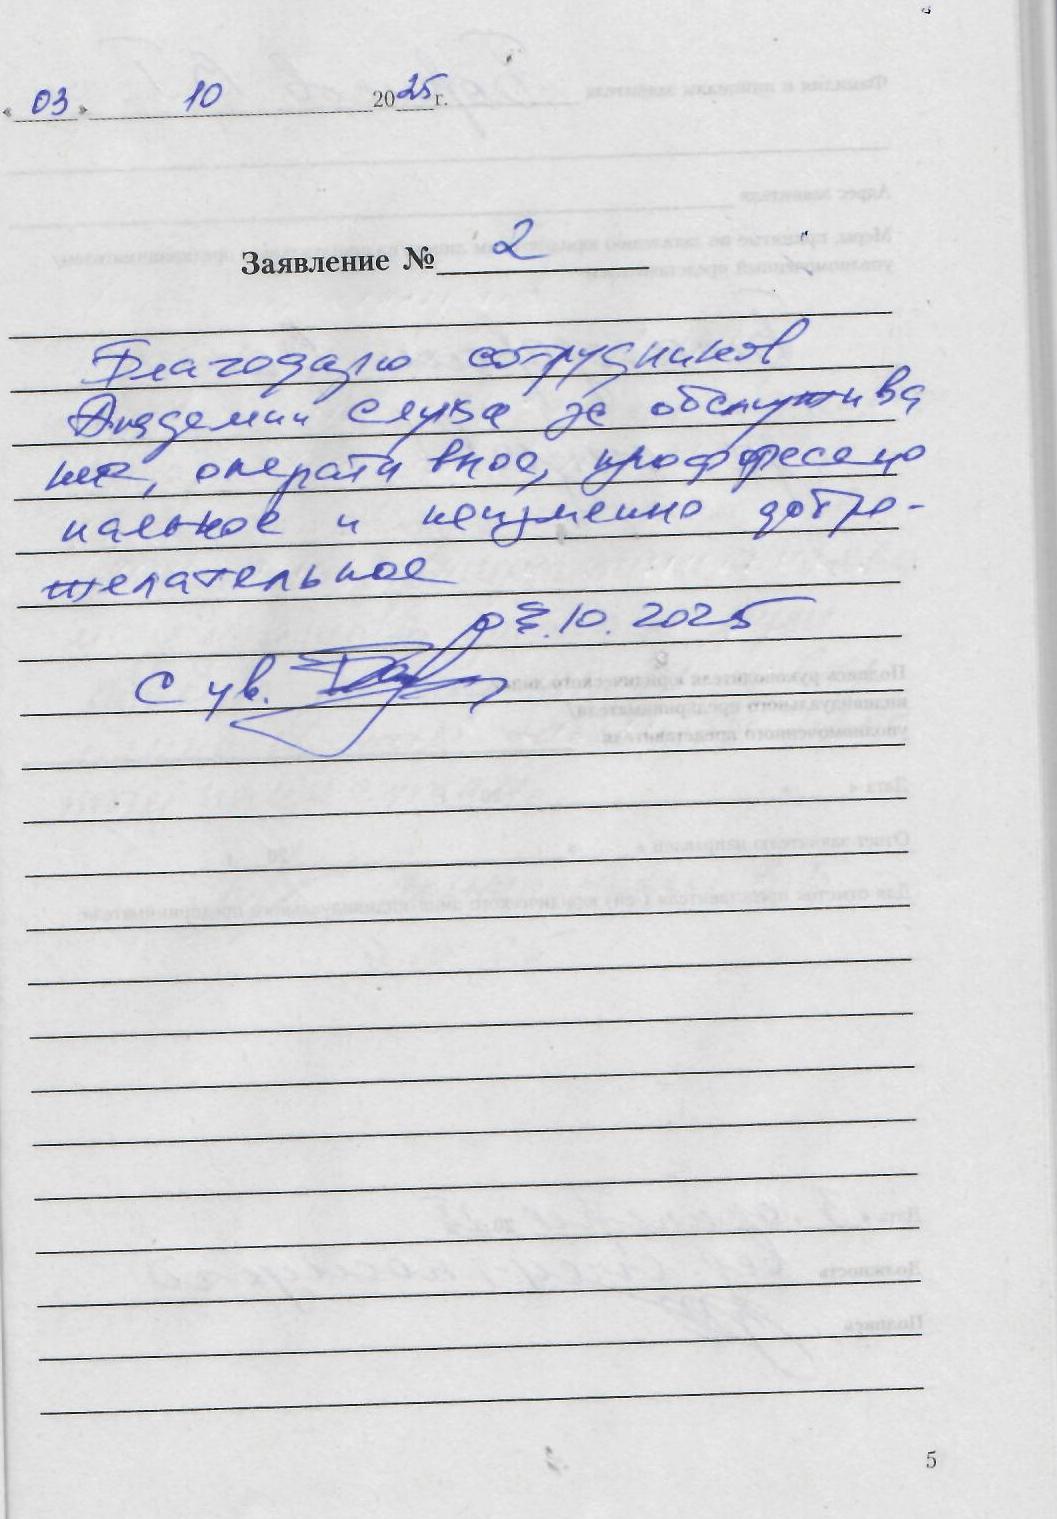 « 03 » 10 2025 г.
Заявление № 2
Благодарю сотрудников
Академии слуха за обслужива
ние, оперативное, проффесио
нальное и неизменно добро-
желательное
03.10.2025
С ув.
5